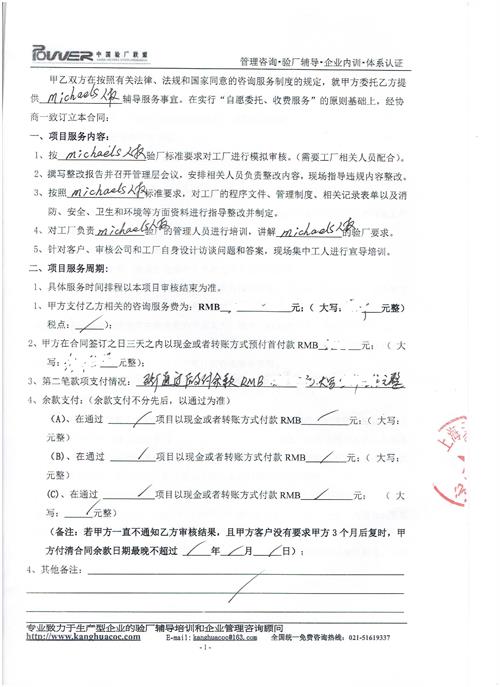 POWER 中国验厂联盟
管理咨询·验厂辅导·企业内训·体系认证
甲乙双方在按照有关法律、法规和国家同意的咨询服务制度的规定，就甲方委托乙方提
供 michaels人权 辅导服务事宜。在实行“自愿委托、收费服务”的原则基础上，经协
商一致订立本合同：
一、项目服务内容：
1、按 michaels人权 验厂标准要求对工厂进行模拟审核。（需要工厂相关人员配合）。
2、撰写整改报告并召开管理层会议，安排相关人员负责整改内容，现场指导违规内容整改。
3、按照 michaels人权 标准要求，对工厂的程序文件、管理制度、相关记录表单以及消
防、安全、卫生和环境等方面资料进行指导整改并制定。
4、对工厂负责 michaels人权 验厂的管理人员进行培训，讲解 michaels人权 的验厂要求。
5、针对客户、审核公司和工厂自身设计访谈问题和答案，现场集中工人进行宣导培训。
二、项目服务周期：
1、具体服务时间排程以本项目审核结束为准。
1、甲方支付乙方相关的咨询服务费为：RMB 元；（ 大写： 元整）
税点： / ）；
2、甲方在合同签订之日三天之内以现金或者转账方式预付首付款 RMB 元；（ 大
写： 元整）；
3、第二笔款项支付情况： 通过后支付余款 RMB 大写 元整
4、余款支付：（余款支付不分先后，以通过为准）
（A）、在通过 / 项目以现金或者转账方式付款 RMB / 元；（ 大写：
元整）
（B）、在通过 / 项目以现金或者转账方式付款 RMB / 元；（ 大写：
元整）
（C）、在通过 / 项目以现金或者转账方式付款 RMB / 元；（ 大
写： / 元整）
（备注：若甲方一直不通知乙方审核结果，且甲方客户没有要求甲方 3 个月后复时，甲
方付清合同余款日期最晚不超过 / 年 / 月 / 日）；
4、其他备注：
上海
专业致力于生产型企业的验厂辅导培训和企业管理咨询顾问
http://www.kanghuacoc.com E-mail: kanghuacoc@163.com 全国统一免费咨询热线：021-51619337
- 1 -